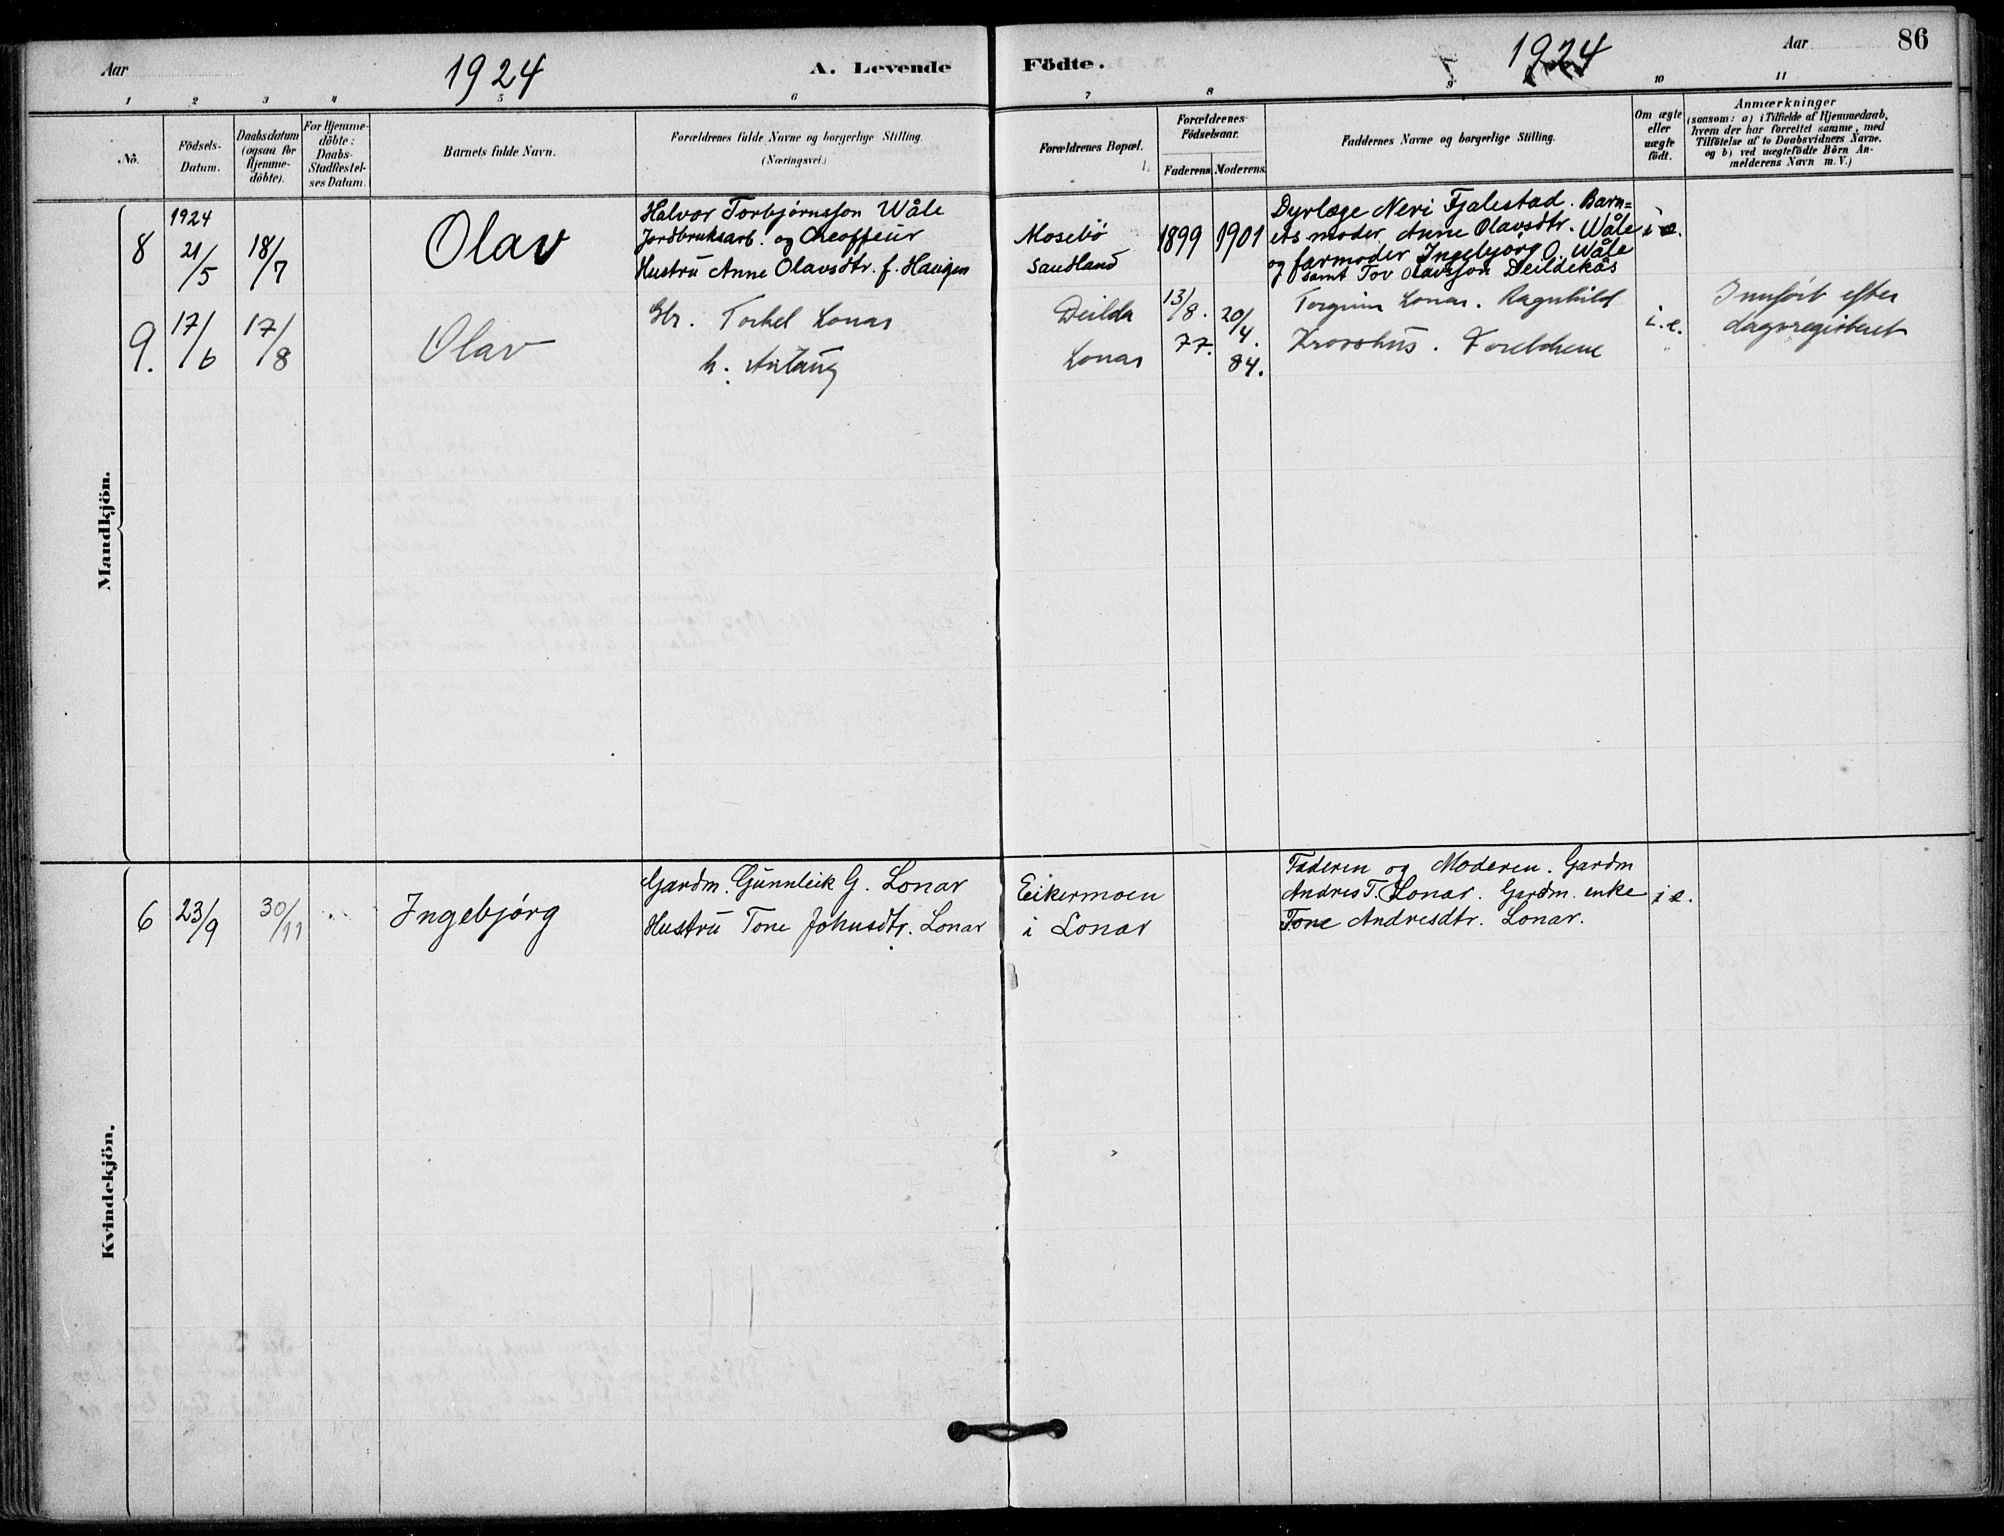 Aar
1924
A. Levende
Födte.
1924
Aar
86
1
2
3
4
5
6
7
8
9
10
11
No.
Födsels-
Datum.
Daabsdatum
(ogsaa for
Hjemme-
döbte).
For Hjemme-
döbte:
Daabs-
Stadfæstel-
ses Datum.
Barnets fulde Navn.
Forældrenes fulde Navne og borgerlige Stilling.
(Næringsvei.)
Forældrenes Bopæl.
Forældrenes
Födselsaar.
Faderens
Moderens.
Faddernes Navne og borgerlige Stilling.
Om ægte
eller
uægte
födt.
Anmærkninger
(saasom: a) i Tilfælde af Hjemmedaab,
hvem der har forrettet samme, med
Tilföielse af to Daabsvidners Navne.
og b) ved uægtefödte Börn An-
melderens Navn m. V.)
Mandkjön.
8
1924
21/5
18/7
Olav
Halvor Torbjørnsson Wåle
Jordbruksarb. og Cheoffeur
Hustru Anne Olavsdtr. f. Haugen
Mosebø
Sandland
1899
1901
Dyrlæge Neri Fjalestad. Barn=
ets moder Anne Olavsdtr. Wåle
og farmoder Ingebjørg O. Wåle
samt Tov Olavsson Deildekås
i e.
9.
17/6
17/8
Olav
Gbr. Torkel Lonar
h. Aslaug
Deilda
Lonar
13/8.
77.
20/4.
84.
Torgrim Lonar. Ragnhild
Krosshus. Foreldrene
i. e.
Innført efter
dagsregisteret
Kvindekjön.
6
23/9
30/11
Ingebjørg
Gardm. Gunnleik G. Lonar
Hustru Tone Johusdtr. Lonar
Eikermoen
i Lonar
Faderen og Moderen. Gardm
Andres T. Lonar. Gardm. enke
Tone Andresdtr. Lonar.
i e.